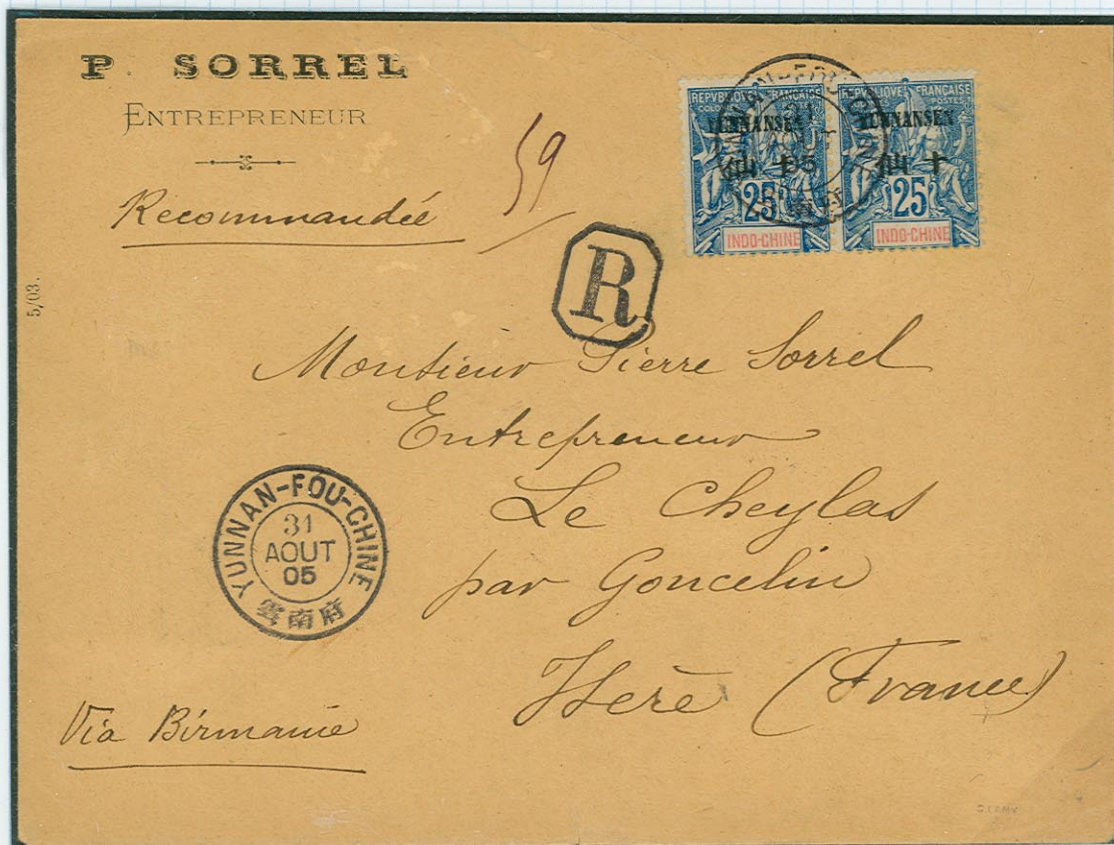 P. SORREL
ENTREPRENEUR
Recommandée
59
REPVBLIQVE FRANÇAISE
COLONIES POSTES
YUNNANSEN
仙十
25
INDO-CHINE
REPVBLIQVE FRANÇAISE
POSTES
YUNNANSEN
仙十
25
INDO-CHINE
YUNNAN-FOU-CHINE
31
AOUT
05
R
5/03.
Monsieur Pierre Sorrel
Entrepreneur
Le Cheylas
par Goncelin
Isère (France)
YUNNAN-FOU-CHINE
31
AOUT
05
雲南府
Via Birmanie